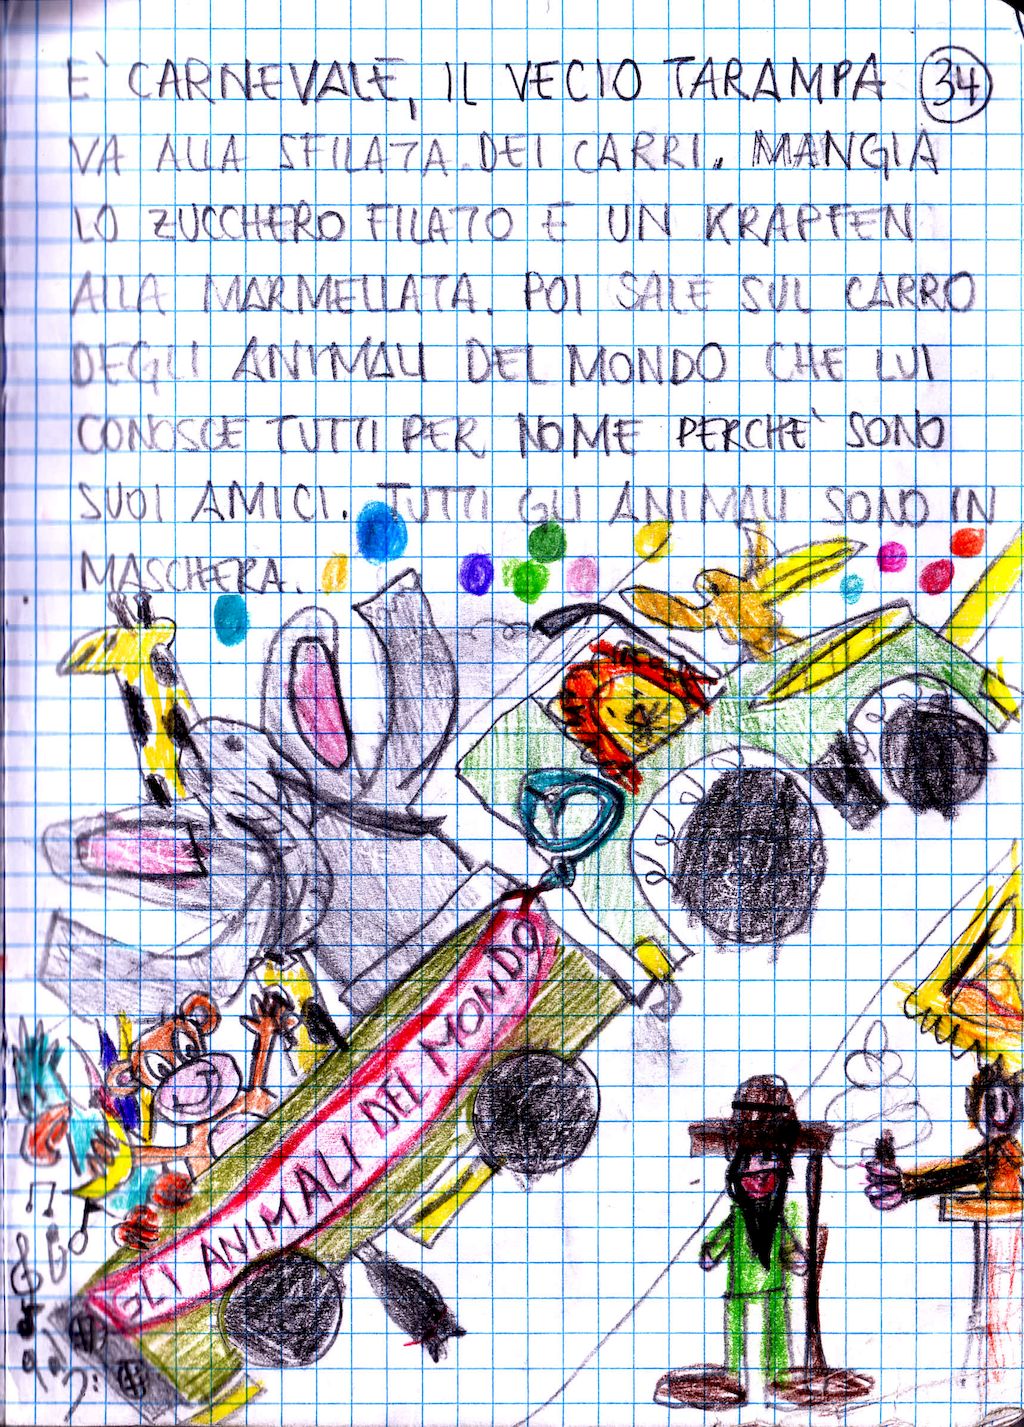 E' CARNEVALE, IL VECIO TARAMPA 34
VA ALLA SFILATA DEI CARRI. MANGIA
LO ZUCCHERO FILATO E UN KRAPFEN
ALLA MARMELLATA. POI SALE SUL CARRO
DEGLI ANIMALI DEL MONDO CHE LUI
CONOSCE TUTTI PER NOME PERCHE' SONO
SUOI AMICI. TUTTI GLI ANIMALI SONO IN
MASCHERA.
GLI ANIMALI DEL MONDO